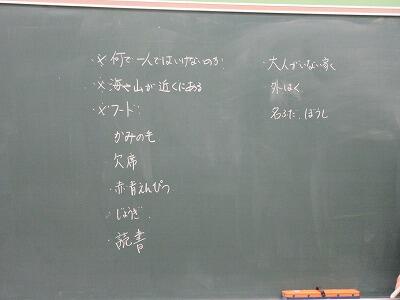 ・※何で一人ではいけないのか
・※海や山が近くにある
・※フード
かみのも
欠席
・赤青えんぴつ
・じょうぎ
・読書
・大人がいない家
外はく
名ふだ、ぼうし